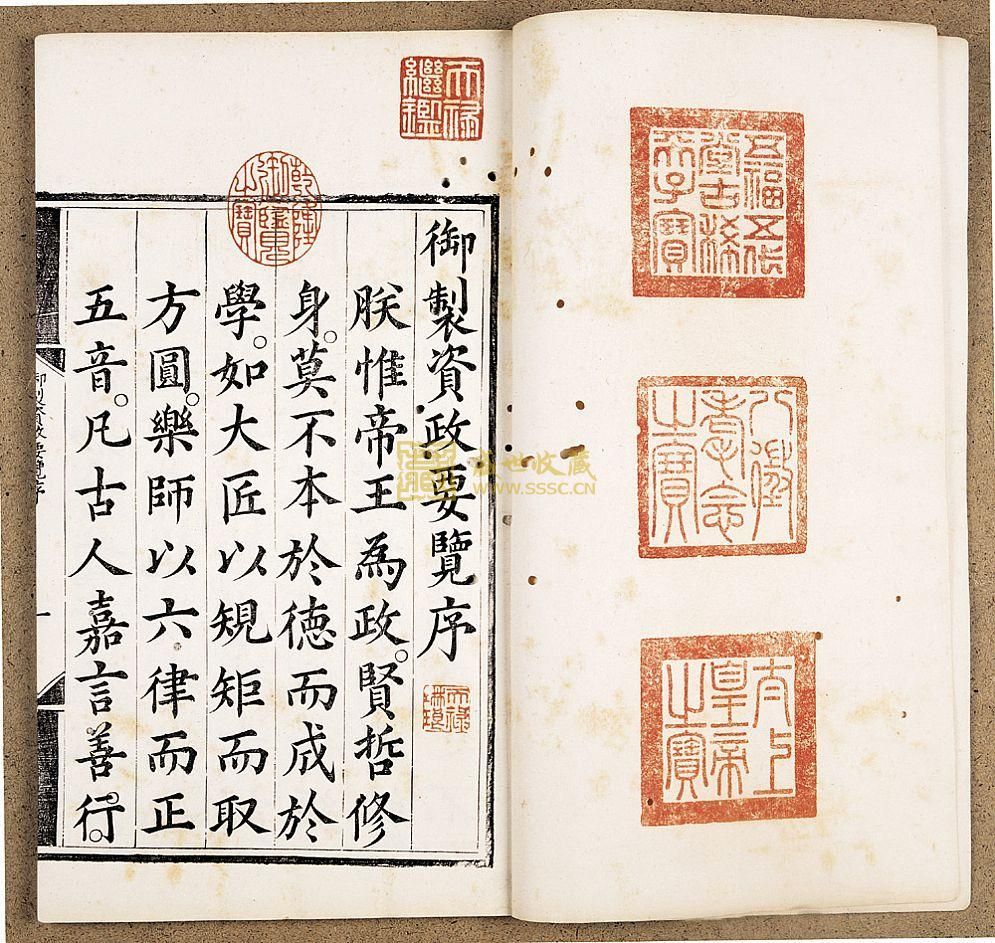 五福五代
堂古稀
天子寶
八徵
耄念
之寶
太上
皇帝
之寶
天祿
繼鑑
乾隆
御覽
之寶
御製資政要覽序
天祿
琳琅
朕惟帝王為政。賢哲修
身。莫不本於徳而成於
學。如大匠以規矩而取
方圓。樂師以六律而正
五音。凡古人嘉言善行。
一
盛世收藏
WWW.SSSC.CN